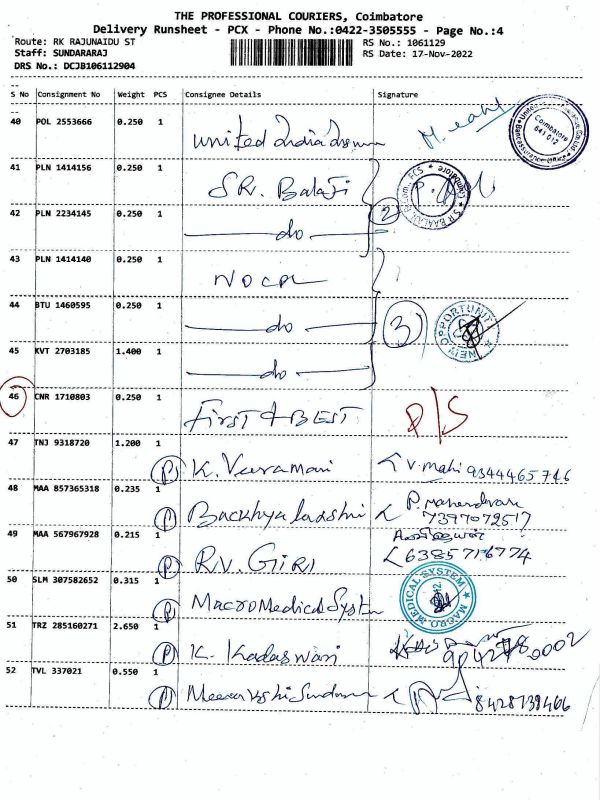 THE PROFESSIONAL COURIERS, Coimbatore
Delivery Runsheet - PCX - Phone No.:0422-3505555 - Page No.:4
Route: RK RAJUNAIDU ST RS No.: 1061129
Staff: SUNDARARAJ RS Date: 17-Nov-2022
DRS No.: DCJB106112904
S No Consignment No Weight PCS Consignee Details Signature
40 POL 2553666 0.250 1 United India
Coimbatore 641 012
41 PLN 1414156 0.250 1 SR. Balaji
42 PLN 2234145 0.250 1 do 2
43 PLN 1414140 0.250 1 NOCPL
44 BTU 1460595 0.250 1 do 3
NEW OPPORTUNITI
45 KVT 2703185 1.400 1 do
46 CNR 1710803 0.250 1 First & BEST P/S
47 TNJ 9318720 1.200 1 P K. Veeramani V. Mahi 9344465746
48 MAA 857365318 0.235 1 P P. Mahendran
7397072517
49 MAA 567967928 0.215 1 P R.V. GIRI 6385716774
50 SLM 307582652 0.315 1 P Macro Medical System
MACRO MEDICAL SYSTEM
51 TRZ 285160271 2.650 1 P K. Kadaswari
52 TVL 337021 0.550 1 P 8428739466